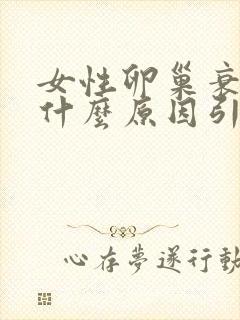 女性卵巢衰
什麼原因引
心存夢遂行動